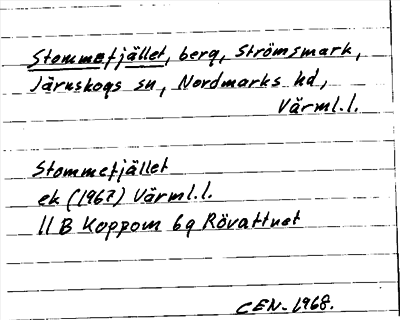 Stommefjället, berg, Strömsmark,
Järnskogs sn, Nordmarks hd,
Värml.l.
Stommefjället
ek (1967) Värml.l.
11 B Koppom 6g Rövattnet
CEN-1968.